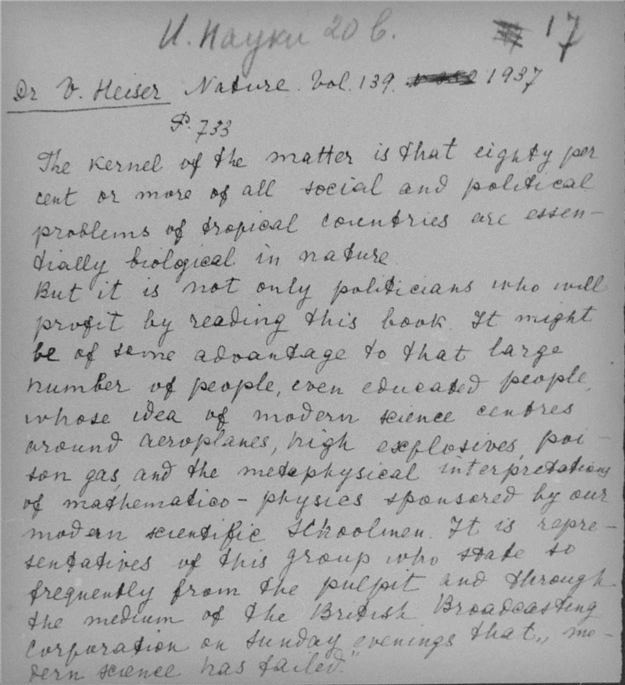 И. Науки 20 в. 17
Dr V. Heiser Nature. Vol. 139. 1937
P. 733
The kernel of the matter is that eighty per
cent or more of all social and political
problems of tropical countries are essen-
tially biological in nature
But it is not only politicians who will
profit by reading this book. It might
be of some advantage to that large
number of people, even educated people,
whose idea of modern science centres
around aeroplanes, high explosives, poi-
son gas, and the metaphysical interpretations
of mathematico-physics sponsored by our
modern scientific schoolmen. It is repre-
sentatives of this group who state so
frequently from the pulpit and through
the medium of the British Broadcasting
Corporation on Sunday evenings that „mo-
dern science has failed."